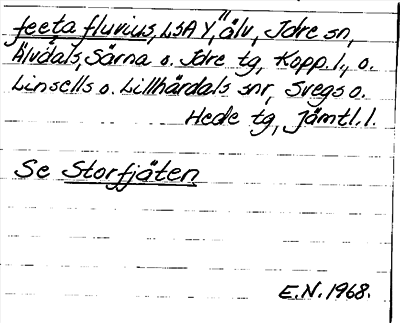 feeta fluvius, LSA Y, "älv, Idre sn,
Älvdals, Särna o. Idre tg, Kopp. l., o.
Linsells o. Lillhärdals snr, Svegs o.
Hede tg, Jämtl. l.
Se Storfjäten
E.N. 1968.